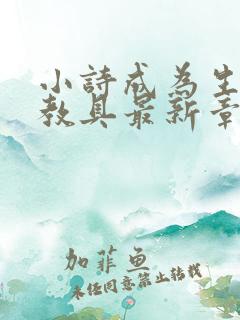 小詩成為生
教具最新章
加菲鱼
未经同意禁止转载